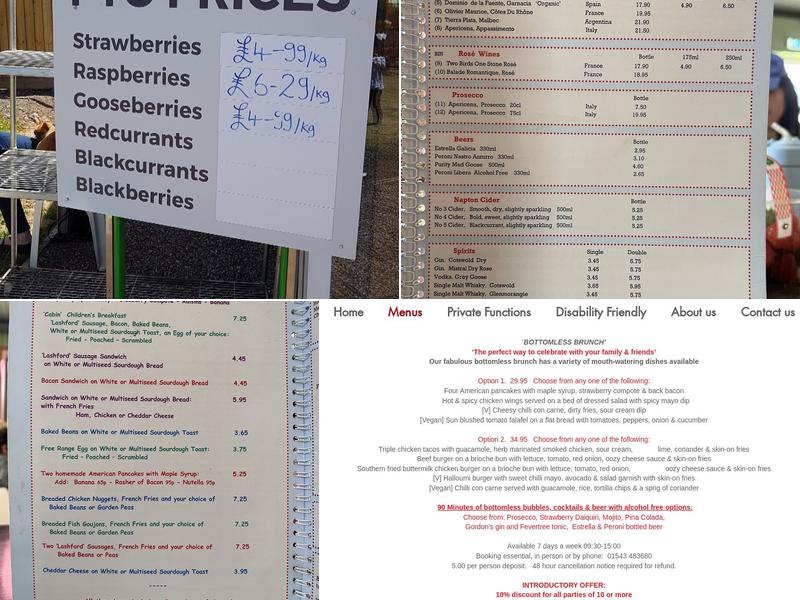 PYO PRICES
Strawberries £4-99/kg
Raspberries £6-29/kg
Gooseberries £4-59/kg
Redcurrants
Blackcurrants
Blackberries
(5) Dominio de la Fuente, Garnacha 'Organic' Spain 17.90 4.90 6.50
(6) Olivier Maurice, Côtes Du Rhône France 19.95
(7) Tierra Plata, Malbec Argentina 21.90
(8) Apericena, Appassimento Italy 21.50
BIN Rosé Wines Bottle 175ml 250ml
(9) Two Birds One Stone Rosé France 17.90 4.90 6.50
(10) Balade Romantique, Rosé France 18.95
Prosecco Bottle
(11) Apericena, Prosecco 20cl Italy 7.50
(12) Apericena, Prosecco 75cl Italy 19.95
Beers Bottle
Estrella Galicia 330ml 2.95
Peroni Nastro Azzurro 330ml 3.10
Purity Mad Goose 500ml 4.60
Peroni Libera Alcohol Free 330ml 2.65
Napton Cider Bottle
No 3 Cider, Smooth, dry, slightly sparkling 500ml 5.25
No 4 Cider, Bold, sweet, slightly sparkling 500ml 5.25
No 5 Cider, Blackcurrant, slightly sparkling 500ml 5.25
Spirits Single Double
Gin. Cotswold Dry 3.45 5.75
Gin. Mistral Dry Rose 3.45 5.75
Vodka. Grey Goose 3.45 5.75
Single Malt Whisky. Cotswold 3.65 5.95
Single Malt Whisky. Glenmorangie 3.45 5.75
'Cabin' Children's Breakfast 7.25
'Lashford' Sausage, Bacon, Baked Beans,
White or Multiseed Sourdough Toast, an Egg of your choice:
Fried – Poached – Scrambled
'Lashford' Sausage Sandwich 4.45
on White or Multiseed Sourdough Bread
Bacon Sandwich on White or Multiseed Sourdough Bread 4.45
Sandwich on White or Multiseed Sourdough Bread: 5.95
with French Fries
Ham, Chicken or Cheddar Cheese
Baked Beans on White or Multiseed Sourdough Toast 3.65
Free Range Egg on White or Multiseed Sourdough Toast: 3.75
Fried – Poached – Scrambled
Two homemade American Pancakes with Maple Syrup: 5.25
Add: Banana 65p - Rasher of Bacon 95p - Nutella 95p
Breaded Chicken Nuggets, French Fries and your choice of 7.25
Baked Beans or Garden Peas
Breaded Fish Goujons, French Fries and your choice of 7.25
Baked Beans or Garden Peas
Two 'Lashford' Sausages, French Fries and your choice of 7.25
Baked Beans or Peas
Cheddar Cheese on White or Multiseed Sourdough Toast 3.95
-----
Home Menus Private Functions Disability Friendly About us Contact us
'BOTTOMLESS BRUNCH'
'The perfect way to celebrate with your family & friends'
Our fabulous bottomless brunch has a variety of mouth-watering dishes available
Option 1. 29.95 Choose from any one of the following:
Four American pancakes with maple syrup, strawberry compote & back bacon
Hot & spicy chicken wings served on a bed of dressed salad with spicy mayo dip
[V] Cheesy chilli con carne, dirty fries, sour cream dip
[Vegan] Sun blushed tomato falafel on a flat bread with tomatoes, peppers, onion & cucumber
Option 2. 34.95 Choose from any one of the following:
Triple chicken tacos with guacamole, herb marinated smoked chicken, sour cream, lime, coriander & skin-on fries
Beef burger on a brioche bun with lettuce, tomato, red onion, oozy cheese sauce & skin-on fries
Southern fried buttermilk chicken burger on a brioche bun with lettuce, tomato, red onion, oozy cheese sauce & skin-on fries
[V] Halloumi burger with sweet chilli mayo, avocado & salad garnish with skin-on fries
[Vegan] Chilli con carne served with guacamole, rice, tortilla chips & a sprig of coriander
90 Minutes of bottomless bubbles, cocktails & beer with alcohol free options.
Choose from: Prosecco, Strawberry Daiquiri, Mojito, Pina Colada,
Gordon's gin and Fevertree tonic, Estrella & Peroni bottled beer
Available 7 days a week 09:30-15:00
Booking essential, in person or by phone: 01543 483680
5.00 per person deposit. 48 hour cancellation notice required for refund.
INTRODUCTORY OFFER:
10% discount for all parties of 10 or more